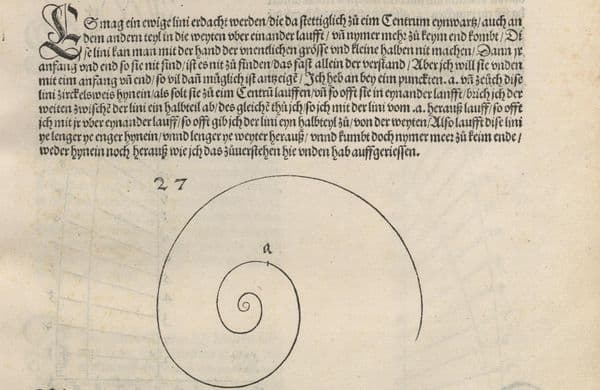 ES mag ein ewige lini erdacht werden/die da stettiglich zů eim Centrum eynwartz/auch an
dem andern teyl in die weyten vber einander laufft / vñ nymer mehꝛ zů keym end kombt/Di
se lini kan man mit der hand der vnentlichen grösse vnd kleine halben nit machen/Dann jr
anfang vnd end so sie nit sind/ist es nit zů finden/das fast allein der verstand/Aber jch will sie vnden
mit eim anfang vñ end/so vil dañ müglich ist antzeigẽ/Jch heb an bey eim puncktẽ.a.vñ zeüch dise
lini zirckelsweis hynein/als solt sie zů eim Centrũ lauffen/vñ so offt sie in eynander laufft/brich jch der
weiten zwischẽ der lini ein halbteil ab/des gleichẽ thů jch so jch mit der lini vom.a. herauß lauff/so offt
jch mit jr vber eynander lauff/so offt gib jch der lini eyn halbteyl zů/von der weyten/Also laufft dise lini
ye lenger ye enger hynein/vnnd lenger ye weyter herauß/vnnd kumbt doch nymer meer zů keim ende/
weder hynein noch herauß wie jch das zůuerstehen hie vnden hab auffgeriessen.
27
a